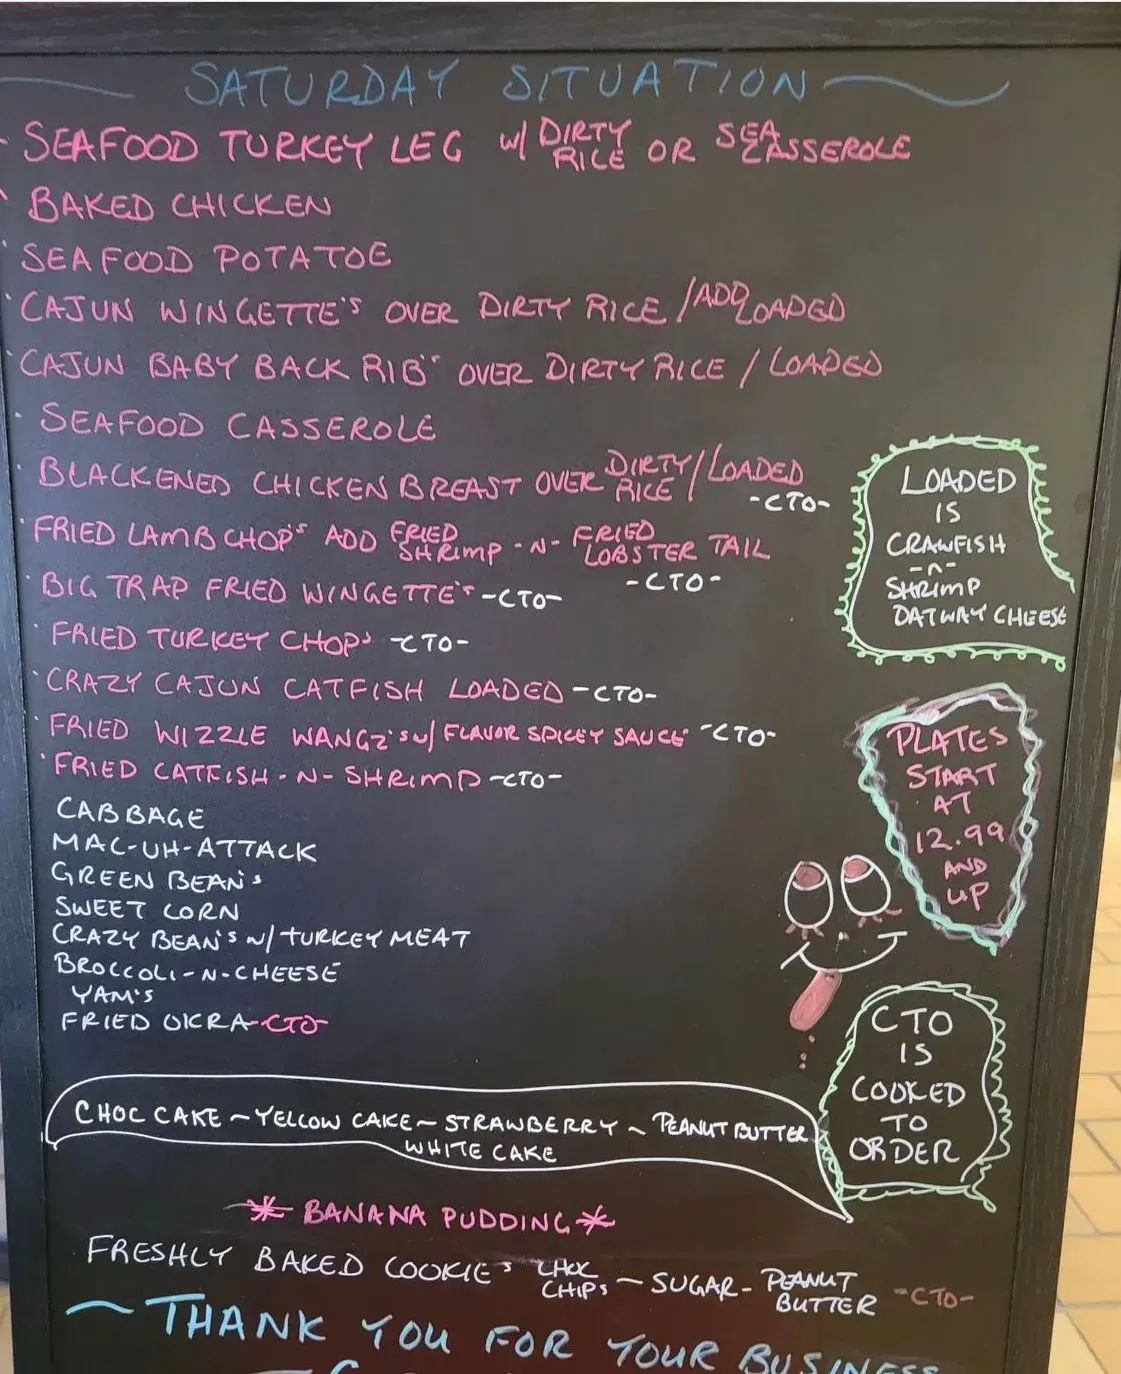 SATURDAY SITUATION
SEAFOOD TURKEY LEG w/ DIRTY RICE OR SEA CASSEROLE
BAKED CHICKEN
SEAFOOD POTATOE
CAJUN WINGETTE'S OVER DIRTY RICE / ADD LOADED
CAJUN BABY BACK RIB'S OVER DIRTY RICE / LOADED
SEAFOOD CASSEROLE
BLACKENED CHICKEN BREAST OVER DIRTY RICE / LOADED -CTO-
FRIED LAMB CHOP'S ADD FRIED SHRIMP -N- FRIED LOBSTER TAIL -CTO-
BIG TRAP FRIED WINGETTE'S -CTO-
FRIED TURKEY CHOP'S -CTO-
CRAZY CAJUN CATFISH LOADED -CTO-
FRIED WIZZLE WANGZ'S w/ FLAVOR SPICEY SAUCE -CTO-
FRIED CATFISH -N- SHRIMP -CTO-
CABBAGE
MAC-UH-ATTACK
GREEN BEAN'S
SWEET CORN
CRAZY BEAN'S w/ TURKEY MEAT
BROCCOLI-N-CHEESE
YAM'S
FRIED OKRA -CTO-
LOADED
IS
CRAWFISH
-N-
SHRIMP
DATWAY CHEESE
PLATES
START
AT
12.99
AND
UP
CTO
IS
COOKED
TO
ORDER
CHOC CAKE ~ YELLOW CAKE ~ STRAWBERRY ~ PEANUT BUTTER
WHITE CAKE
* BANANA PUDDING *
FRESHLY BAKED COOKIE'S CHOC CHIPS ~ SUGAR - PEANUT BUTTER -CTO-
~ THANK YOU FOR YOUR BUSINESS